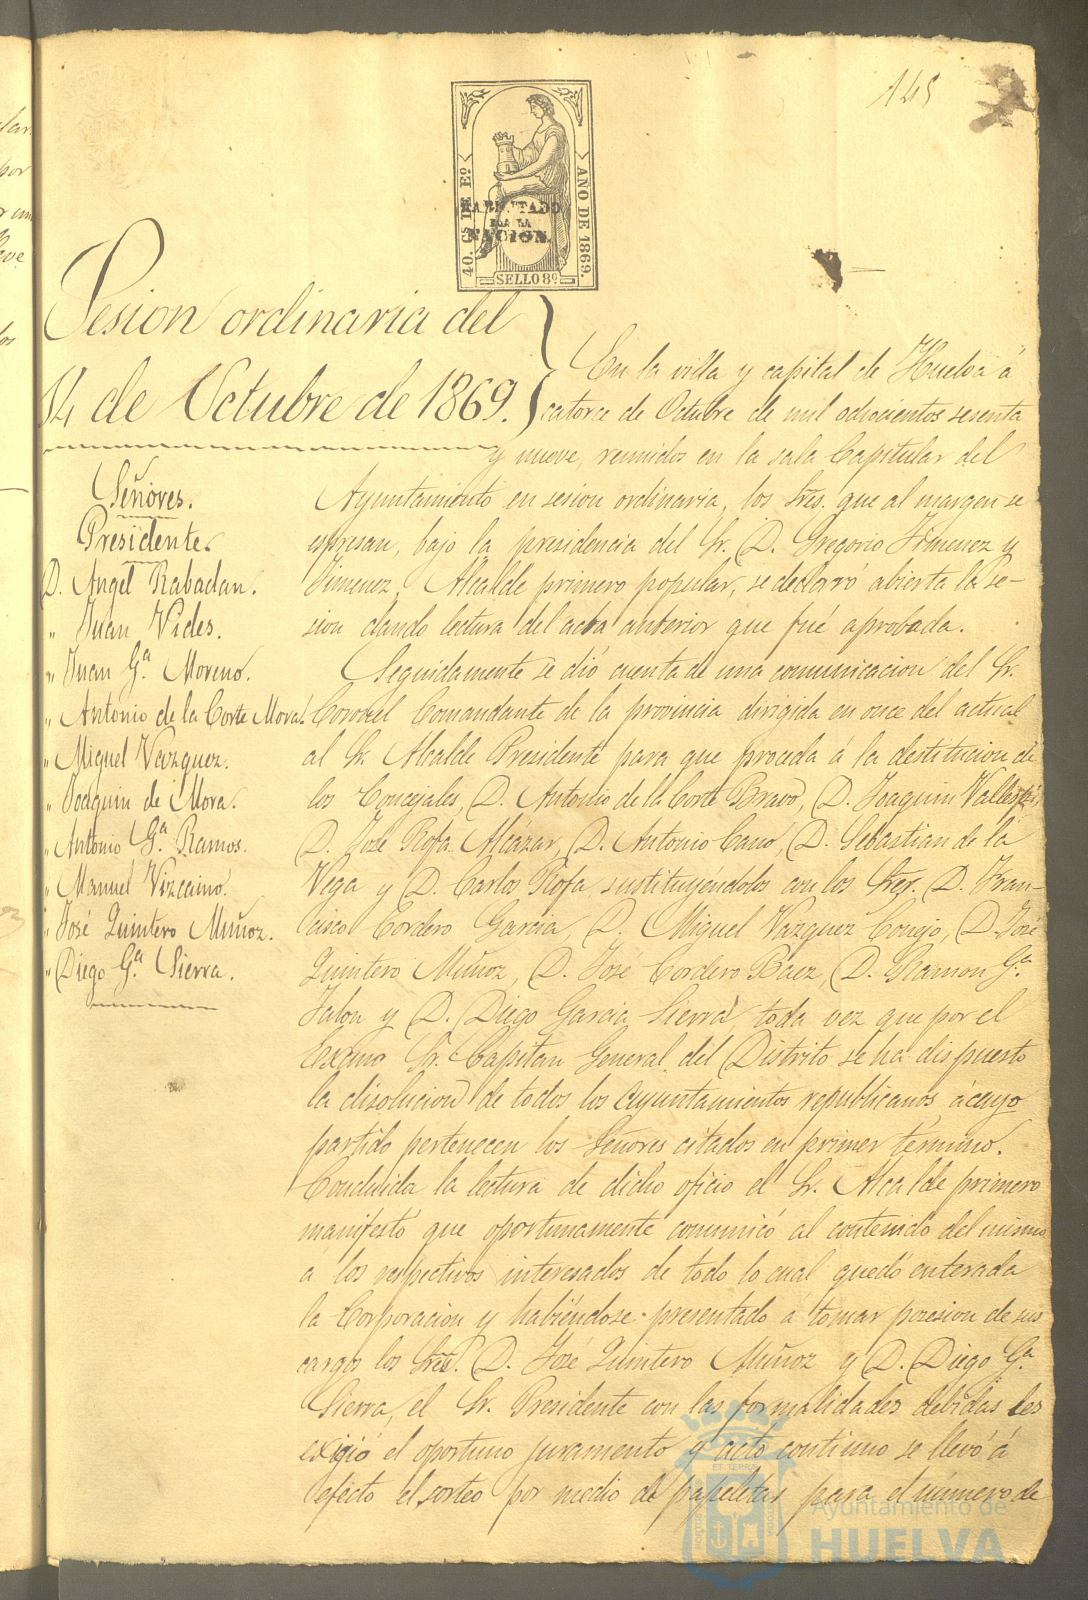 145
40. CS DE Eº
AÑO DE 1869.
HABILITADO
POR LA
NACION.
SELLO 8º
Sesion ordinaria del
14 de Octubre de 1869.
En la villa y capital de Huelva á
catorce de Octubre de mil ochocientos sesenta
y nueve, reunidos en la sala Capitular del
Ayuntamiento en sesion ordinaria, los Sres. que al margen se
espresan, bajo la presidencia del Sr. D. Gregorio Jimenez y
Jimenez, Alcalde primero popular, se declaró abierta la se-
sion dando lectura del acta anterior que fué aprobada.
Señores.
Presidente.
D. Angel Rabadan.
" Juan Vides.
" Juan Gª Moreno.
" Antonio de la Corte Mora.
" Miguel Vazquez.
" Joaquin de Mora.
" Antonio Gª Ramos.
" Manuel Vizcaino.
" José Quintero Muñoz.
" Diego Gª Sierra.
Seguidamente se dió cuenta de una comunicacion del Sr.
Coronel Comandante de la provincia dirigida en once del actual
al Sr. Alcalde Presidente para que proceda á la destitucion de
los Concejales, D. Antonio de la Corte Bravo, D. Joaquin
D. José Rofa Alcázar, D. Antonio Cano, D. Sebastian de la
Vega y D. Carlos Rofa sustituyéndolos con los Sres. D. Fran-
cisco Cordero Garcia, D. Miguel Vazquez Conejo, D. José
Quintero Muñoz, D. José Cordero Baez, D. Ramon Gª
Jalon y D. Diego Garcia Sierra, toda vez que por el
Excmo Sr. Capitan General del Distrito se ha dispuesto
la disolucion de todos los Ayuntamientos republicanos á cuyo
partido pertenecen los Señores citados en primer término.
Concluida la lectura de dicho oficio el Sr. Alcalde primero
manifestó que oportunamente comunicó al contenido del mismo
a los respectivos interesados de todo lo cual quedó enterada
la Corporacion y habiéndose presentado á tomar posesion de sus
cargos los Sres. D. José Quintero Muñoz y D. Diego Gª
Sierra, el Sr. Presidente con las formalidades debidas les
exigió el oportuno juramento y acto continuo se llevó á
efecto el sorteo por medio de papeletas para el número de
Ayuntamiento de
HUELVA